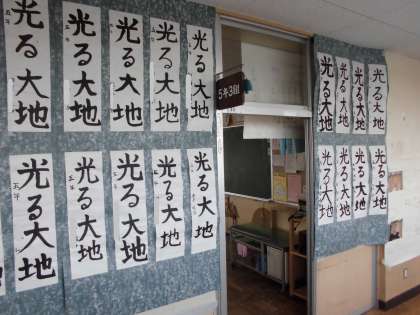 光る大地
五年
光る大地
光る大地
光る大地
光る大地
5年3組
光る大地
光る大地
光る大地
光る大地
光る大地
五年
光る大地
光る大地
光る大地
光る大地
光る大地
光る大地
光る大地
光る大地